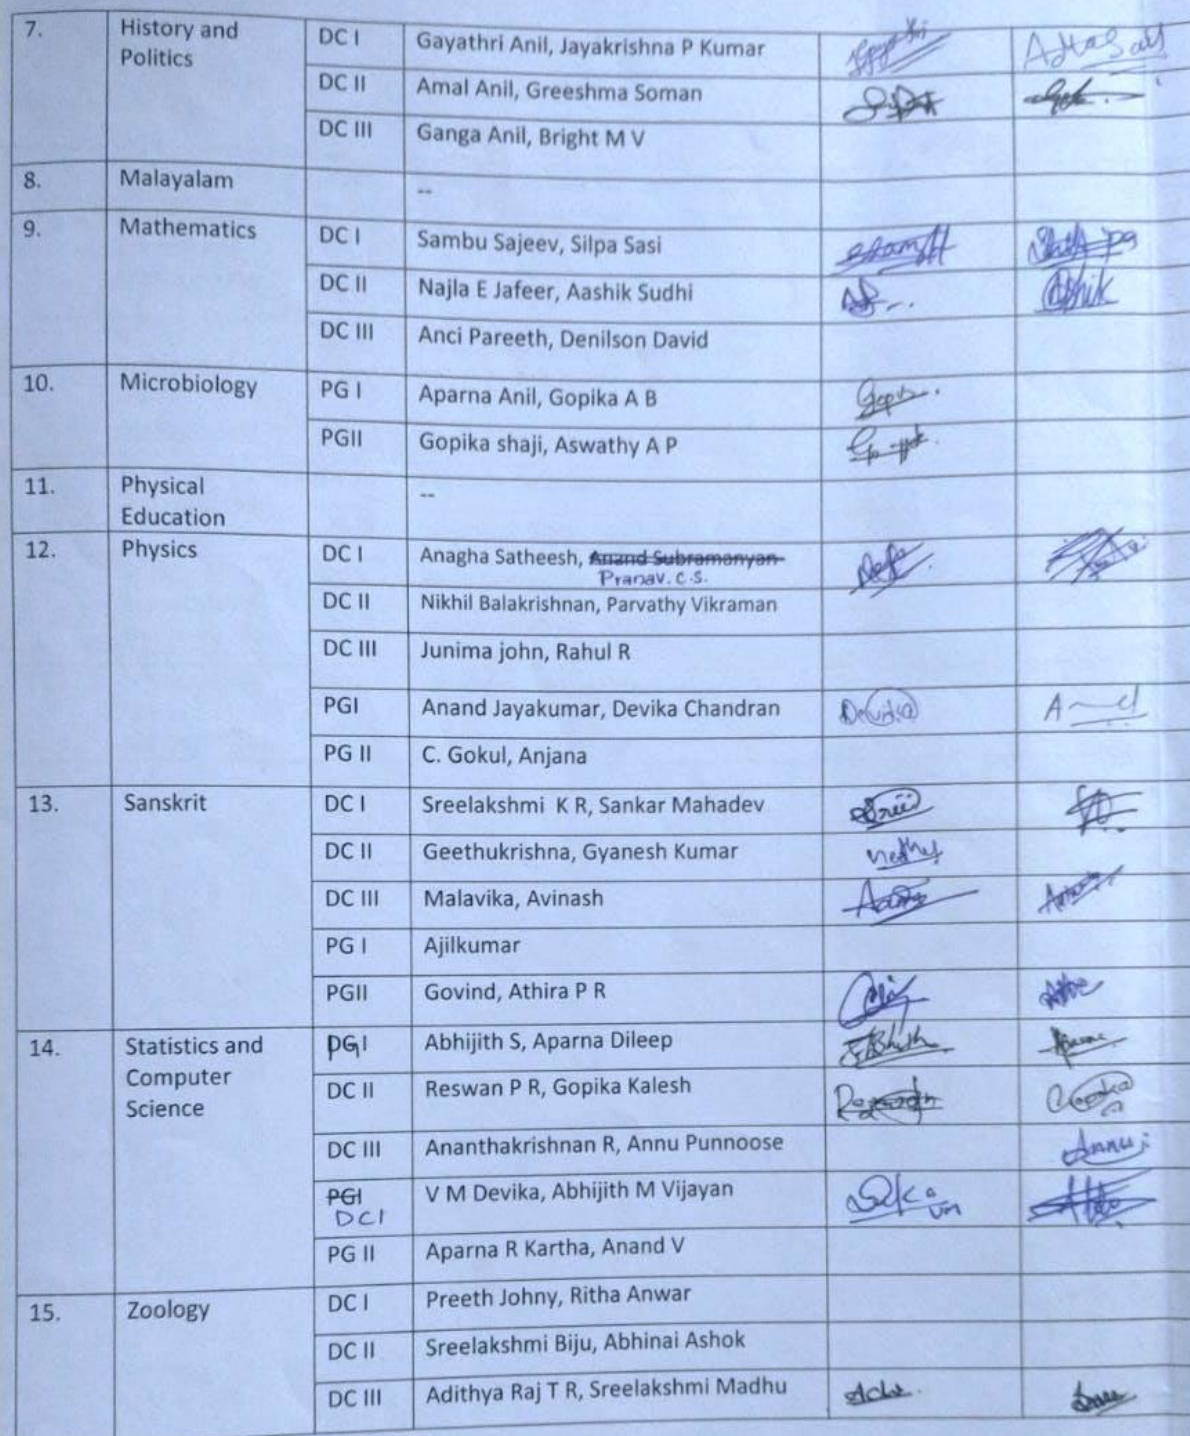 7. History and DC I Gayathri Anil, Jayakrishna P Kumar
Politics
DC II Amal Anil, Greeshma Soman
DC III Ganga Anil, Bright M V
8. Malayalam --
9. Mathematics DC I Sambu Sajeev, Silpa Sasi
DC II Najla E Jafeer, Aashik Sudhi Ashik
DC III Anci Pareeth, Denilson David
10. Microbiology PG I Aparna Anil, Gopika A B
PGII Gopika shaji, Aswathy A P
11. Physical --
Education
12. Physics DC I Anagha Satheesh, Anand Subramanyan
Pranav. C.S.
DC II Nikhil Balakrishnan, Parvathy Vikraman
DC III Junima john, Rahul R
PGI Anand Jayakumar, Devika Chandran Devika
PG II C. Gokul, Anjana
13. Sanskrit DC I Sreelakshmi K R, Sankar Mahadev
DC II Geethukrishna, Gyanesh Kumar
DC III Malavika, Avinash
PG I Ajilkumar
PGII Govind, Athira P R
14. Statistics and PGI Abhijith S, Aparna Dileep
Computer
Science
DC II Reswan P R, Gopika Kalesh
DC III Ananthakrishnan R, Annu Punnoose Annu
PGI V M Devika, Abhijith M Vijayan
DCI
PG II Aparna R Kartha, Anand V
15. Zoology DC I Preeth Johny, Ritha Anwar
DC II Sreelakshmi Biju, Abhinai Ashok
DC III Adithya Raj T R, Sreelakshmi Madhu